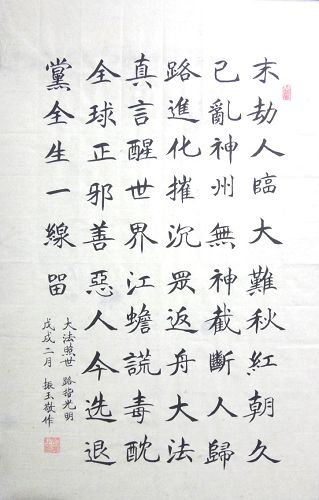 末劫人臨大難秋紅朝久
已亂神州無神截斷人歸
路進化摧沉眾返舟大法
真言醒世界江蟾謊毒酖
全球正邪善惡人今选退
黨全生一線留
大法照世 路皆光明
戊戌二月 振玉敬作